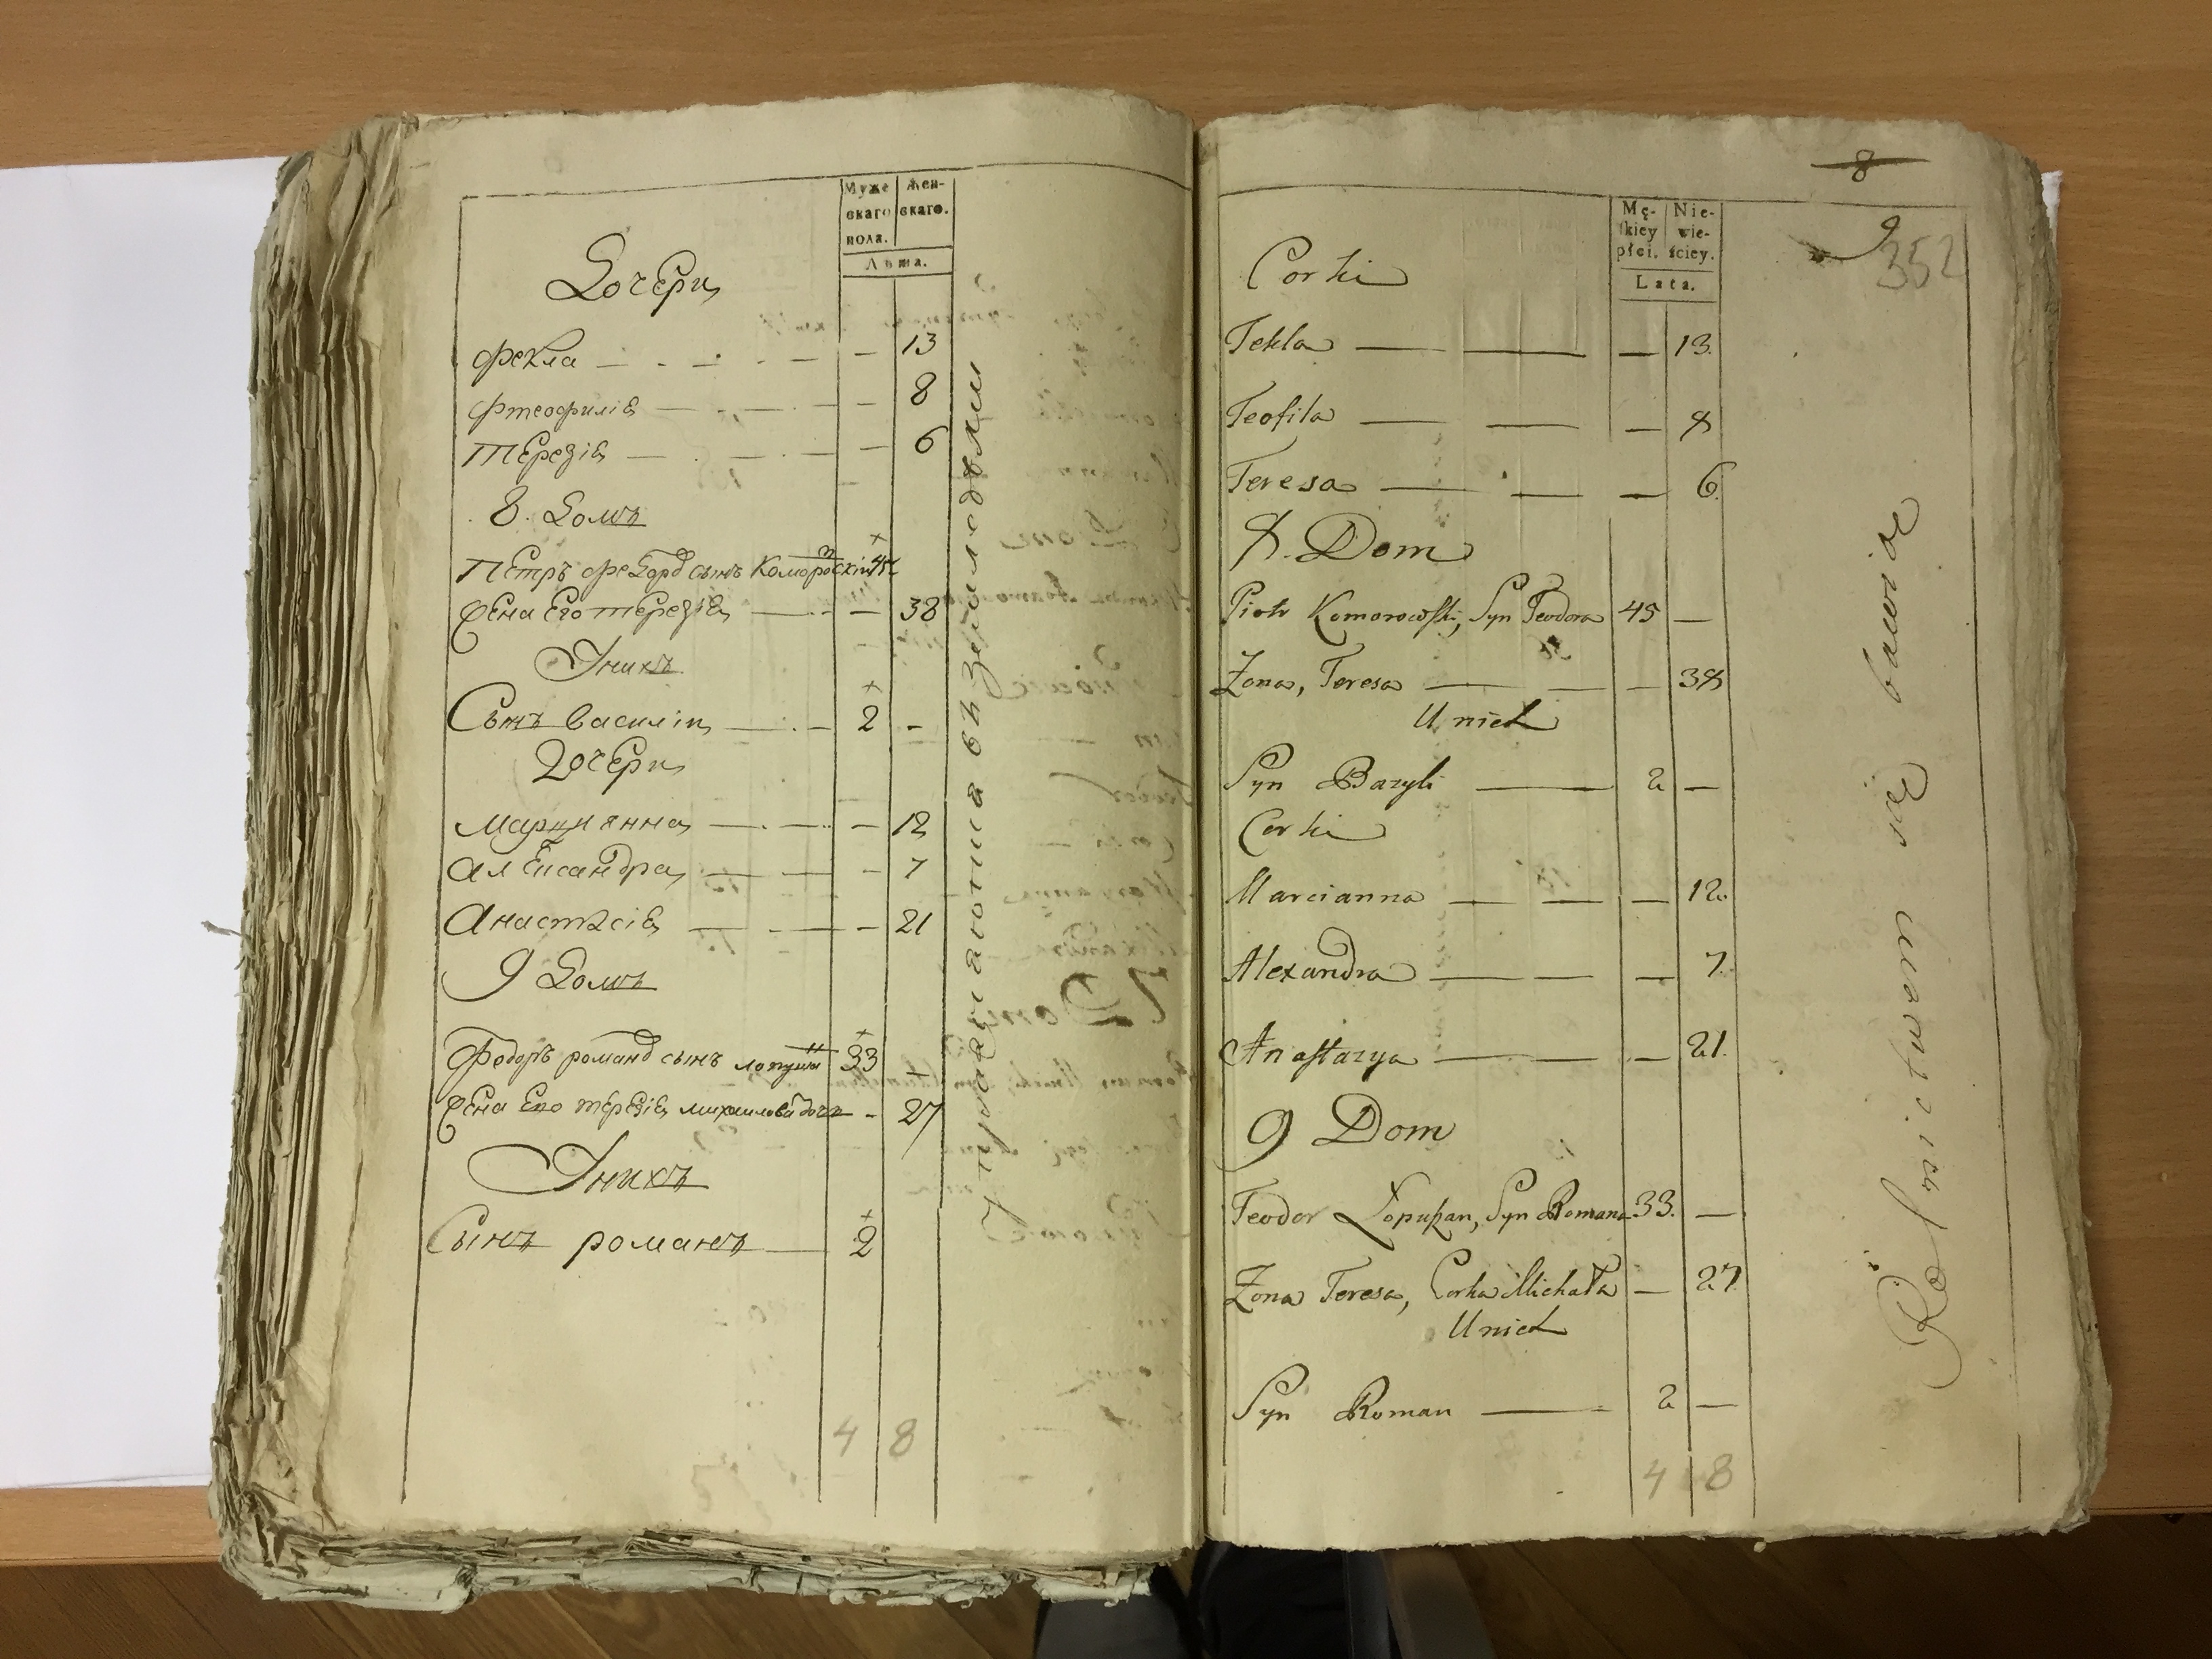 Муже- Жен-
скаго скаго.
пола.
Лѣта.
Дочери
Фекла — 13
Фтеофиліѧ — 8
Терезіѧ — 6
8. Домъ
Петръ сынъ Коморо​вскій 45
Жена Его Терезіѧ — 38
У нихъ
Сынъ Василіи 2 —
Дочери
Марциянна — 12
Александра — 7
Анастасіѧ — 21
9 Домъ
Федоръ романов сынъ лопушан 33
Жена Его терезіѧ михаилова дочь — 27
У нихъ
Сынъ романъ 2
4 8
Упражняются въ земледѣли
8
9
352
Mę- Nie-
skiey wie-
płci. ściey.
Lata.
Corki
Tekla — 13.
Teofila — 8
Teresa — 6.
8. Dom
Piotr Komorowski, Syn Teodora 45 —
Zona, Teresa — 38
U nich
Syn Bazyli 2 —
Corki
Marcianna — 12.
Alexandra — 7.
Anastazya — 21.
9 Dom
Teodor Łopuszan, Syn Romana 33. —
Zona Teresa, Corka Michała — 27
U nich
Syn Roman 2 —
4 8
Rolnictwem się bawią